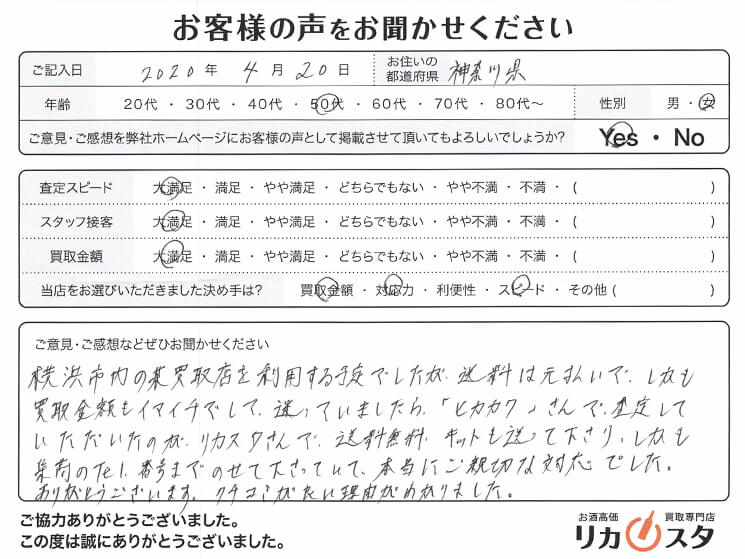 お客様の声をお聞かせください
ご記入日 2020 年 4 月 20 日 お住いの都道府県 神奈川県
年齢 20代 ・ 30代 ・ 40代 ・ 50代 ・ 60代 ・ 70代 ・ 80代～ 性別 男 ・ 女
ご意見・ご感想を弊社ホームページにお客様の声として掲載させて頂いてもよろしいでしょうか? Yes ・ No
査定スピード 大満足 ・ 満足 ・ やや満足 ・ どちらでもない ・ やや不満 ・ 不満 ・ ( )
スタッフ接客 大満足 ・ 満足 ・ やや満足 ・ どちらでもない ・ やや不満 ・ 不満 ・ ( )
買取金額 大満足 ・ 満足 ・ やや満足 ・ どちらでもない ・ やや不満 ・ 不満 ・ ( )
当店をお選びいただきました決め手は? 買取金額 ・ 対応力 ・ 利便性 ・ スピード ・ その他 ( )
ご意見・ご感想などぜひお聞かせください
横浜市内の某買取店を利用する予定でしたが、送料は元払いで、しかも
買取金額もイマイチでして、迷っていましたら、「ヒカカク」さんで、査定して
いただいたのが、リカスタさんで、送料無料、キットも送って下さり、しかも
集荷のTel.番号までのせて下さっていて、本当にご親切な対応でした。
ありがとうございます。クチコミがたかい理由がわかりました。
ご協力ありがとうございました。
この度は誠にありがとうございました。
お酒高価 買取専門店
リカスタ